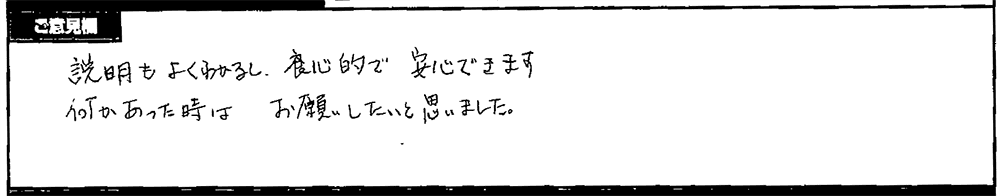 ご意見欄
説明もよくわかるし、良心的で 安心できます
何かあった時は お願いしたいと思いました。